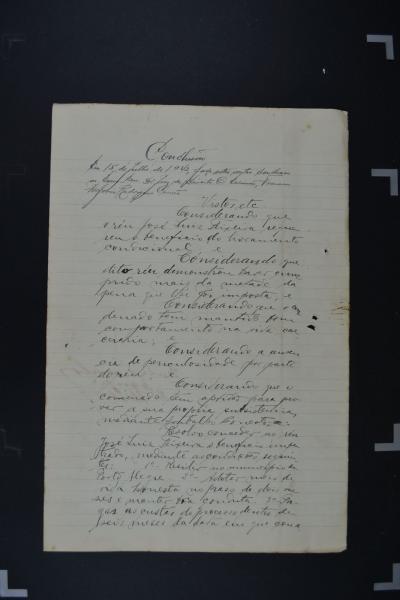 Conclusão
Em 15 de Julho de 1943, faço estes autos conclusos
Vistos, etc.
Considerando que
o réu José Luiz Teixeira reque-
reu o beneficio do livramento
condicional; e
Considerando que
dito réu demonstrou haver cum-
prido mais da metade da
pena que lhe foi imposta; e
Considerando que o con-
denado tem mantido bom
comportamento na vida car-
ceraria; e
Considerando a ausen-
cia de periculosidade por parte
do réu; e
Considerando que o
condenado tem aptidão para pro-
ver a sua propria subsistencia
mediante trabalho honesto:
Resolvo conceder ao réu
José Luiz Teixeira o beneficio impe-
trado, mediante as condições seguin-
tes: 1º Residir no municipio de
Porto Alegre 2º Adotar meio de
vida honesta no prazo de dois me-
ses e manter boa conduta. 3º Pa-
gar as custas do processo dentro de
seis meses da data em que come